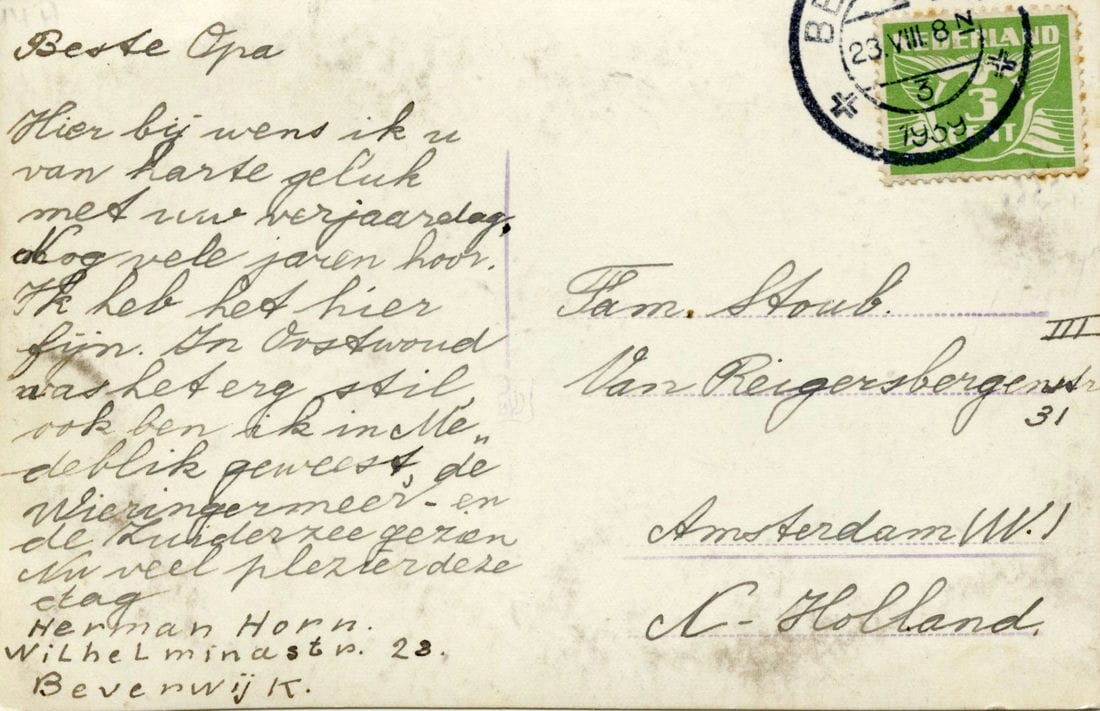 Beste Opa
Hier bij wens ik u
van harte geluk
met uw verjaardag,
Nog vele jaren hoor.
Ik heb het hier
fijn. In Oostwoud
was het erg stil,
ook ben ik in Me„
deblik geweest, de
Wieringermeer - en
de Zuiderzee gezien
Nu veel plezier deze
dag
Herman Horn.
Wilhelminastr. 23.
Beverwijk.
BE
23.VIII. 8 N
3
1939
NEDERLAND
3
CENT
Fam. Stoub.
III
Van Reigersbergenstr
31
Amsterdam W.1
N-Holland.